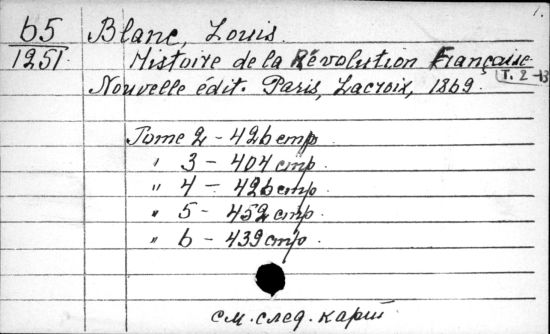 1.
65 Blanc, Louis.
1251 Histoire de la Révolution Française
T. 2-13
Nouvelle édit. Paris, Lacroix, 1869.
Tome 2 - 426 стр.
" 3 - 404 стр.
" 4 - 426 стр.
" 5 - 452 стр.
" 6 - 439 стр.
см. след. карт